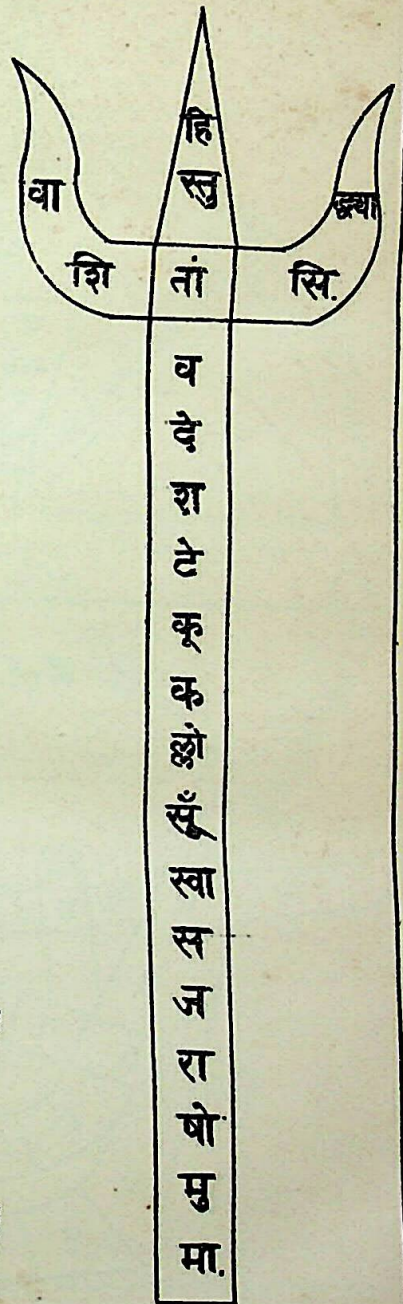 हि
स्तु
वा द्ध्या
शि तां सि.
व
दे
श
टे
कू
क
ल्लो
सूँ
स्वा
स
ज
रा
षो
मु
मा.